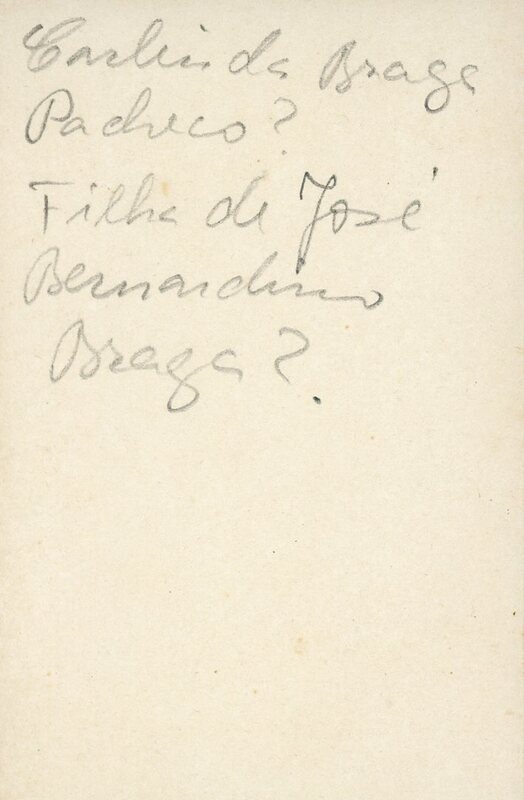 Carlinda Braga
Pacheco?
Filha de José
Bernardino
Braga?